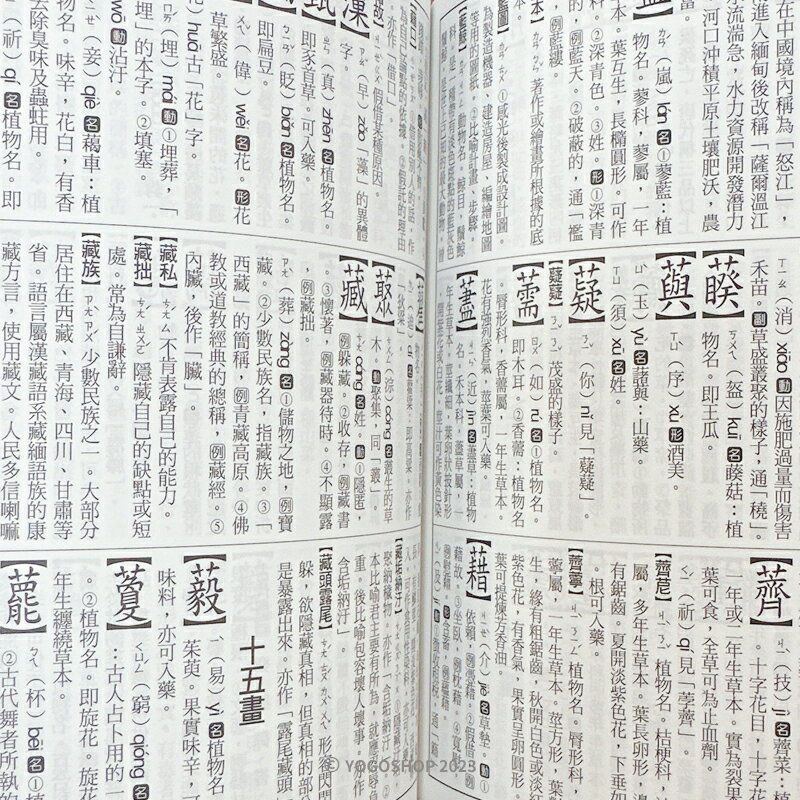 在中國境內稱為「怒江」，
進入緬甸後改稱「薩爾溫江
水流湍急，水力資源開發潛力
河口沖積平原土壤肥沃，農
（嵐）lán 名①蓼藍：植
物名。蓼科，蓼屬，一年
本。葉互生，長橢圓形。可作
料。②深青色。③姓。形①深青
色。例藍天
②破敝的，通「襤
【藍本】著作或繪畫所根據的底
【藍圖】①感光後製成設計圖。
為製造機器、建造房屋、編繪地圖
等用的圖紙。②比喻計畫、步驟。
（消）xiāo 動因施肥過量而傷害
禾苗。形草盛叢聚的樣子，通「橈」。
【藈】（盔）kuí 名藈菇：植
物名。即王瓜。
（序）xù 形酒美。
【藇】（玉）yù 名藷藇：山藥。
（須）xú 名姓。
【薿】（你）nǐ 見「薿薿」。
【薿薿】茂盛的樣子。
【薷】（如）rú 名①植物名。
即木耳。②香薷：植物名
。唇形科，香薷屬，一年生草本，
花有強烈香氣，莖葉可入藥。
【藎】（近）jìn 名藎草：植物
名。禾本科，藎草屬，一
年生草本，莖纖細，葉卵狀披針形
，開紫花或白花，莖汁可作黃色染
【薺】（技）jì 名薺菜：植
名。十字花科，十字花目，
一年或二年生草本，實為裂果
葉可食，全草可為止血劑。
（祈）qí 見「荸薺」。
【薺苨】植物名。桔梗科，
屬，多年生草本。葉長卵形，
有鋸齒。夏開淡紫色花，下垂如
。根可入藥。
【薺薴】植物名。唇形科，
薴屬，一年生草本。莖方形，葉
生，緣有粗鋸齒，秋開白色或淡紅
紫色花，有香氣，果實呈卵圓形。
葉可提煉芳香油。
【藉】（介）jiè 名草墊。動①
依賴，例憑藉。②假借，例
藉故。③坐臥，例枕藉。④寬
故 亦作「借口」
假借某種原因。
（早）zǎo 「藻」的異體
字。
（真）zhēn 名植物名。
即豕首草。可入藥。
（貶）biǎn 名植物名。
即扁豆。
（偉）wěi 名花。形花
草繁盛。
huā 古「花」字。
（埋）mái 動①埋葬，「
埋」的本字。②填塞。
wò 動沾汙。
（妾）qiè 名藒車：植
物名。味辛，花白，有香
去除臭味及蟲蛀用。
（祈）qí 名植物名。即
【藂】（淙）cóng 名叢生的草
木。動聚集，同「叢」。
【藏】cáng 名姓。動①隱匿，
例躲藏。②收存，例藏書
。③懷著，例藏器待時。④不顯露
，例藏拙。
（葬）zàng 名①儲物之地，例寶
藏。②少數民族名，指藏族。③「
西藏」的簡稱，例青藏高原。④佛
教或道教經典的總稱，例藏經。⑤
內臟，後作「臟」。
【藏私】不肯表露自己的能力。
【藏拙】隱藏自己的缺點或短
處。常為自謙辭。
【藏族】少數民族之一。大部分
居住在西藏、青海、四川、甘肅等
省。語言屬漢藏語系藏緬語族的康
藏方言，使用藏文。人民多信喇嘛
【藏垢納汙】
聚納穢物。亦作「含垢納汙」。
本比喻君主要有所為，就應忍辱負
重。後比喻包容壞人壞事。亦作「
含垢納汙」。
【藏頭露尾】形容閃閃
躲，欲隱藏真相，但真相的部分
是暴露出來。亦作「露尾藏頭
十五畫
【藙】（易）yì 名植物名
茱萸。果實味辛，可
味料，亦可入藥。
【藑】（窮）qióng 名
：古人占卜用的一
。②植物名。即旋花。旋花
年生纏繞草本。
【藣】（杯）bēi 名①植
②古代舞者所執的
© YOGOSHOP 2023